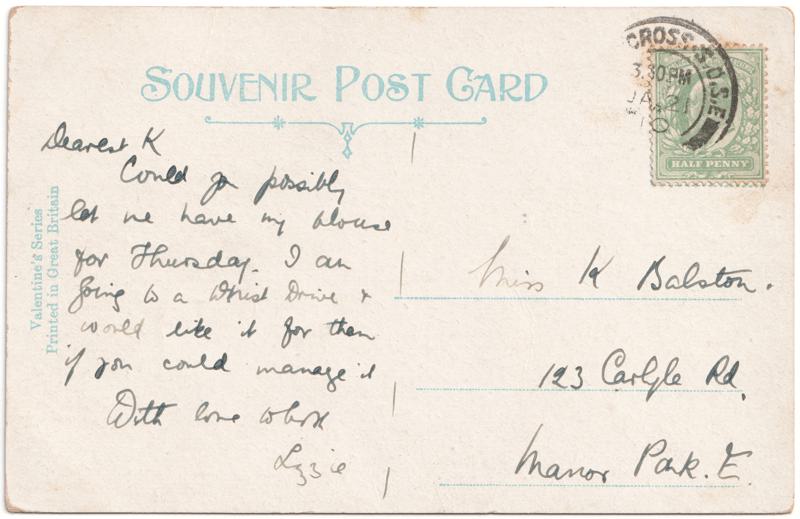 SOUVENIR POST CARD
CROSS S.O.S.E
3.30PM
JA 21
10
HALF PENNY
Dearest K
Could you possibly
let me have my blouse
for Thursday. I am
going to a Whist Drive &
would like it for then
if you could manage it
With love
Lizzie
Miss K Balston.
123 Carlyle Rd,
Manor Park. E.
Valentine's Series
Printed in Great Britain